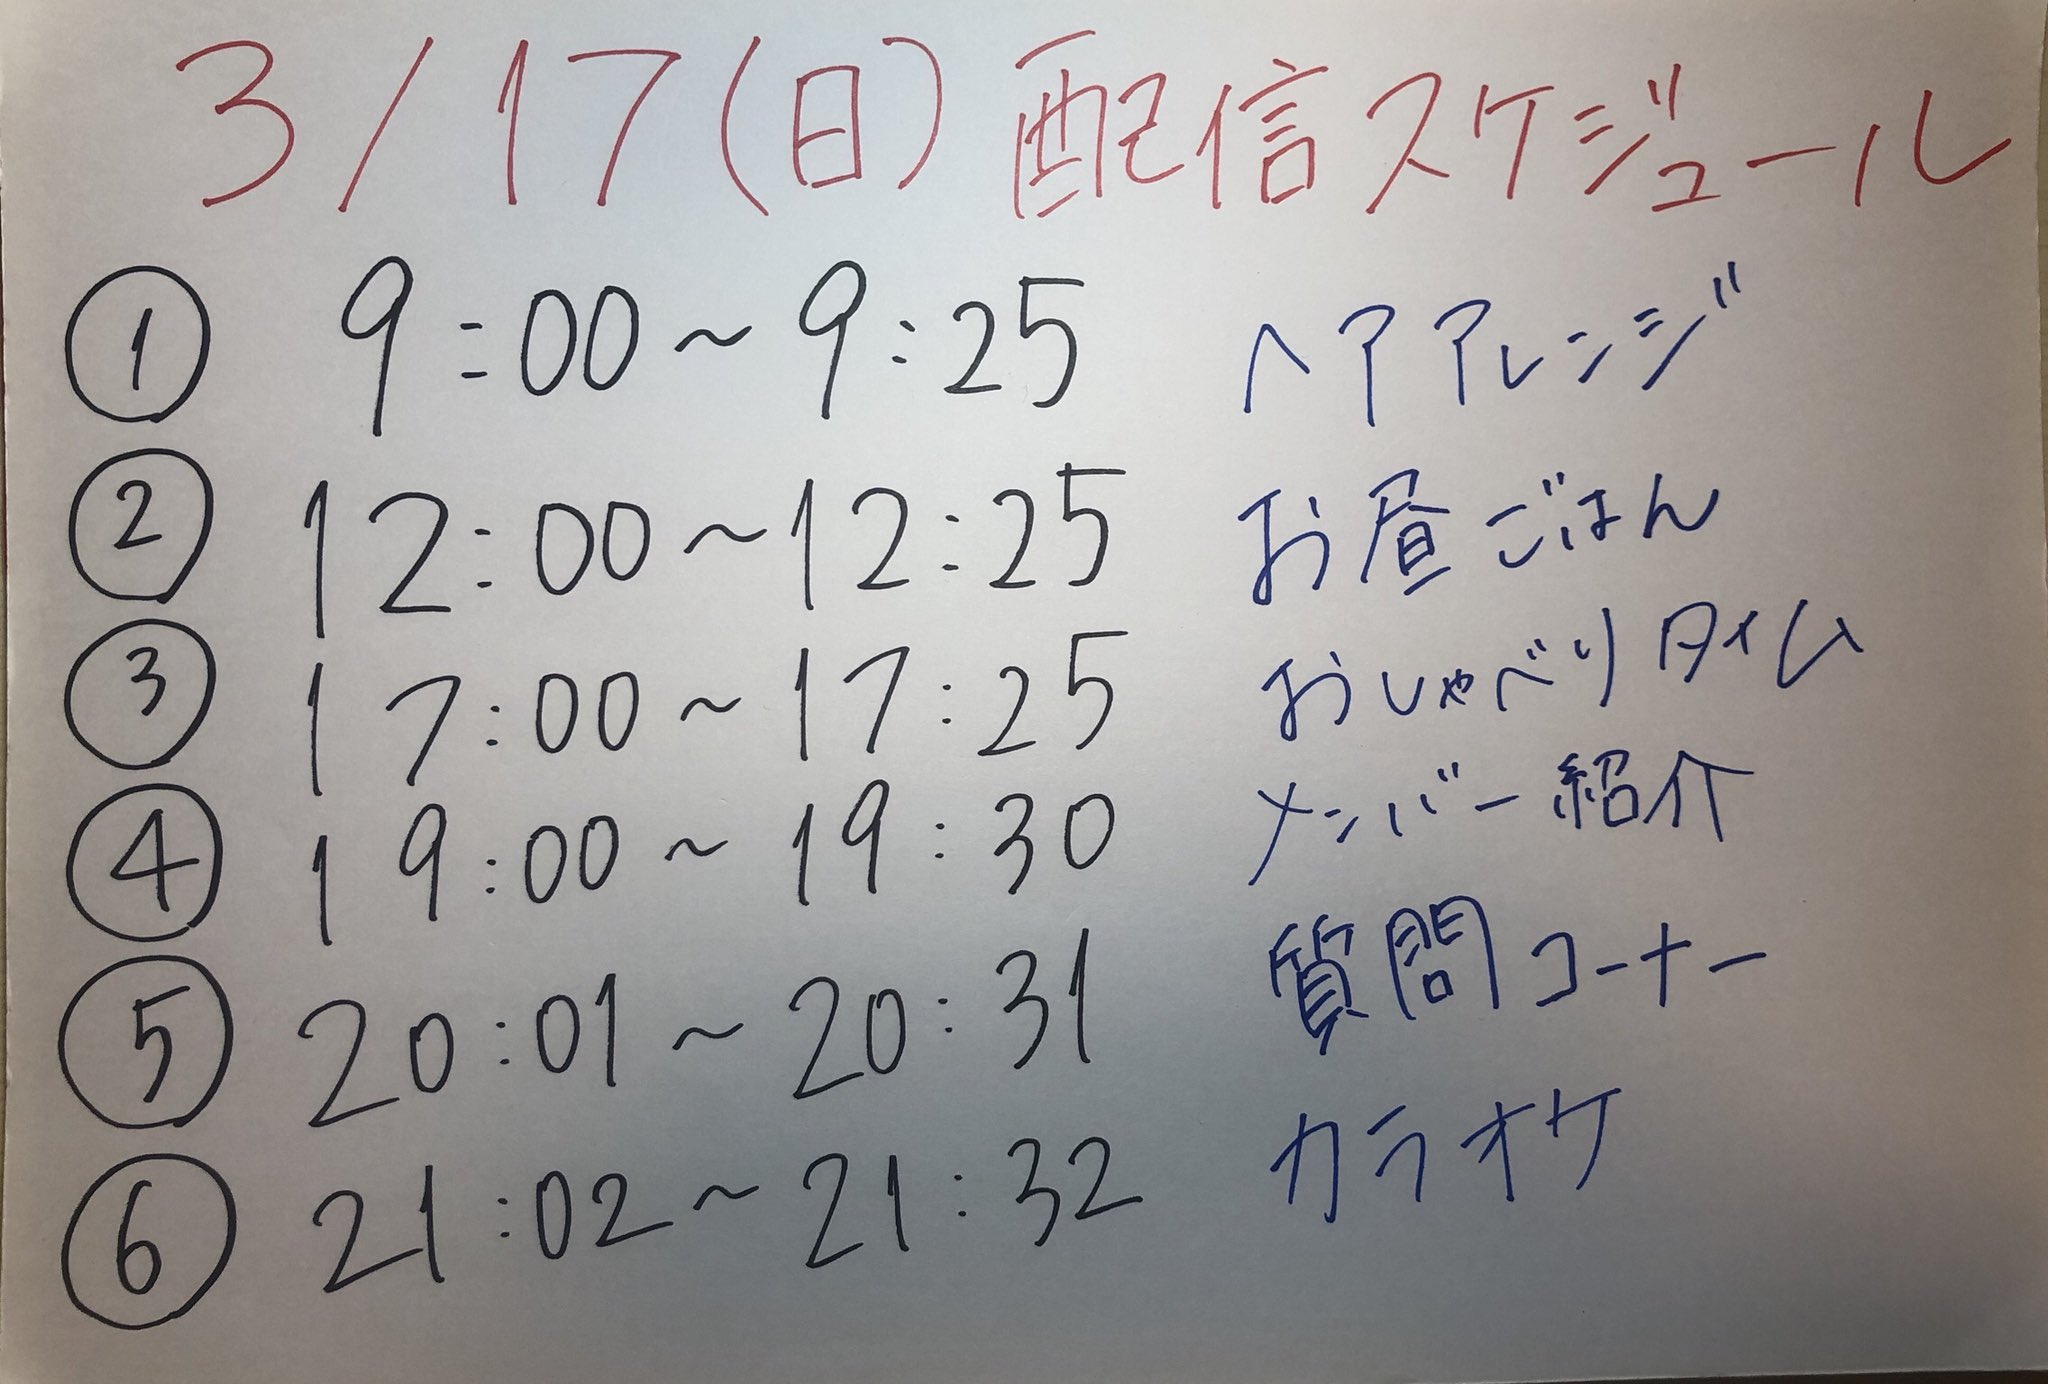 3/17(日)配信スケジュール
① 9:00～9:25 ヘアアレンジ
② 12:00～12:25 お昼ごはん
③ 17:00～17:25 おしゃべりタイム
④ 19:00～19:30 メンバー紹介
⑤ 20:01～20:31 質問コーナー
⑥ 21:02～21:32 カラオケ